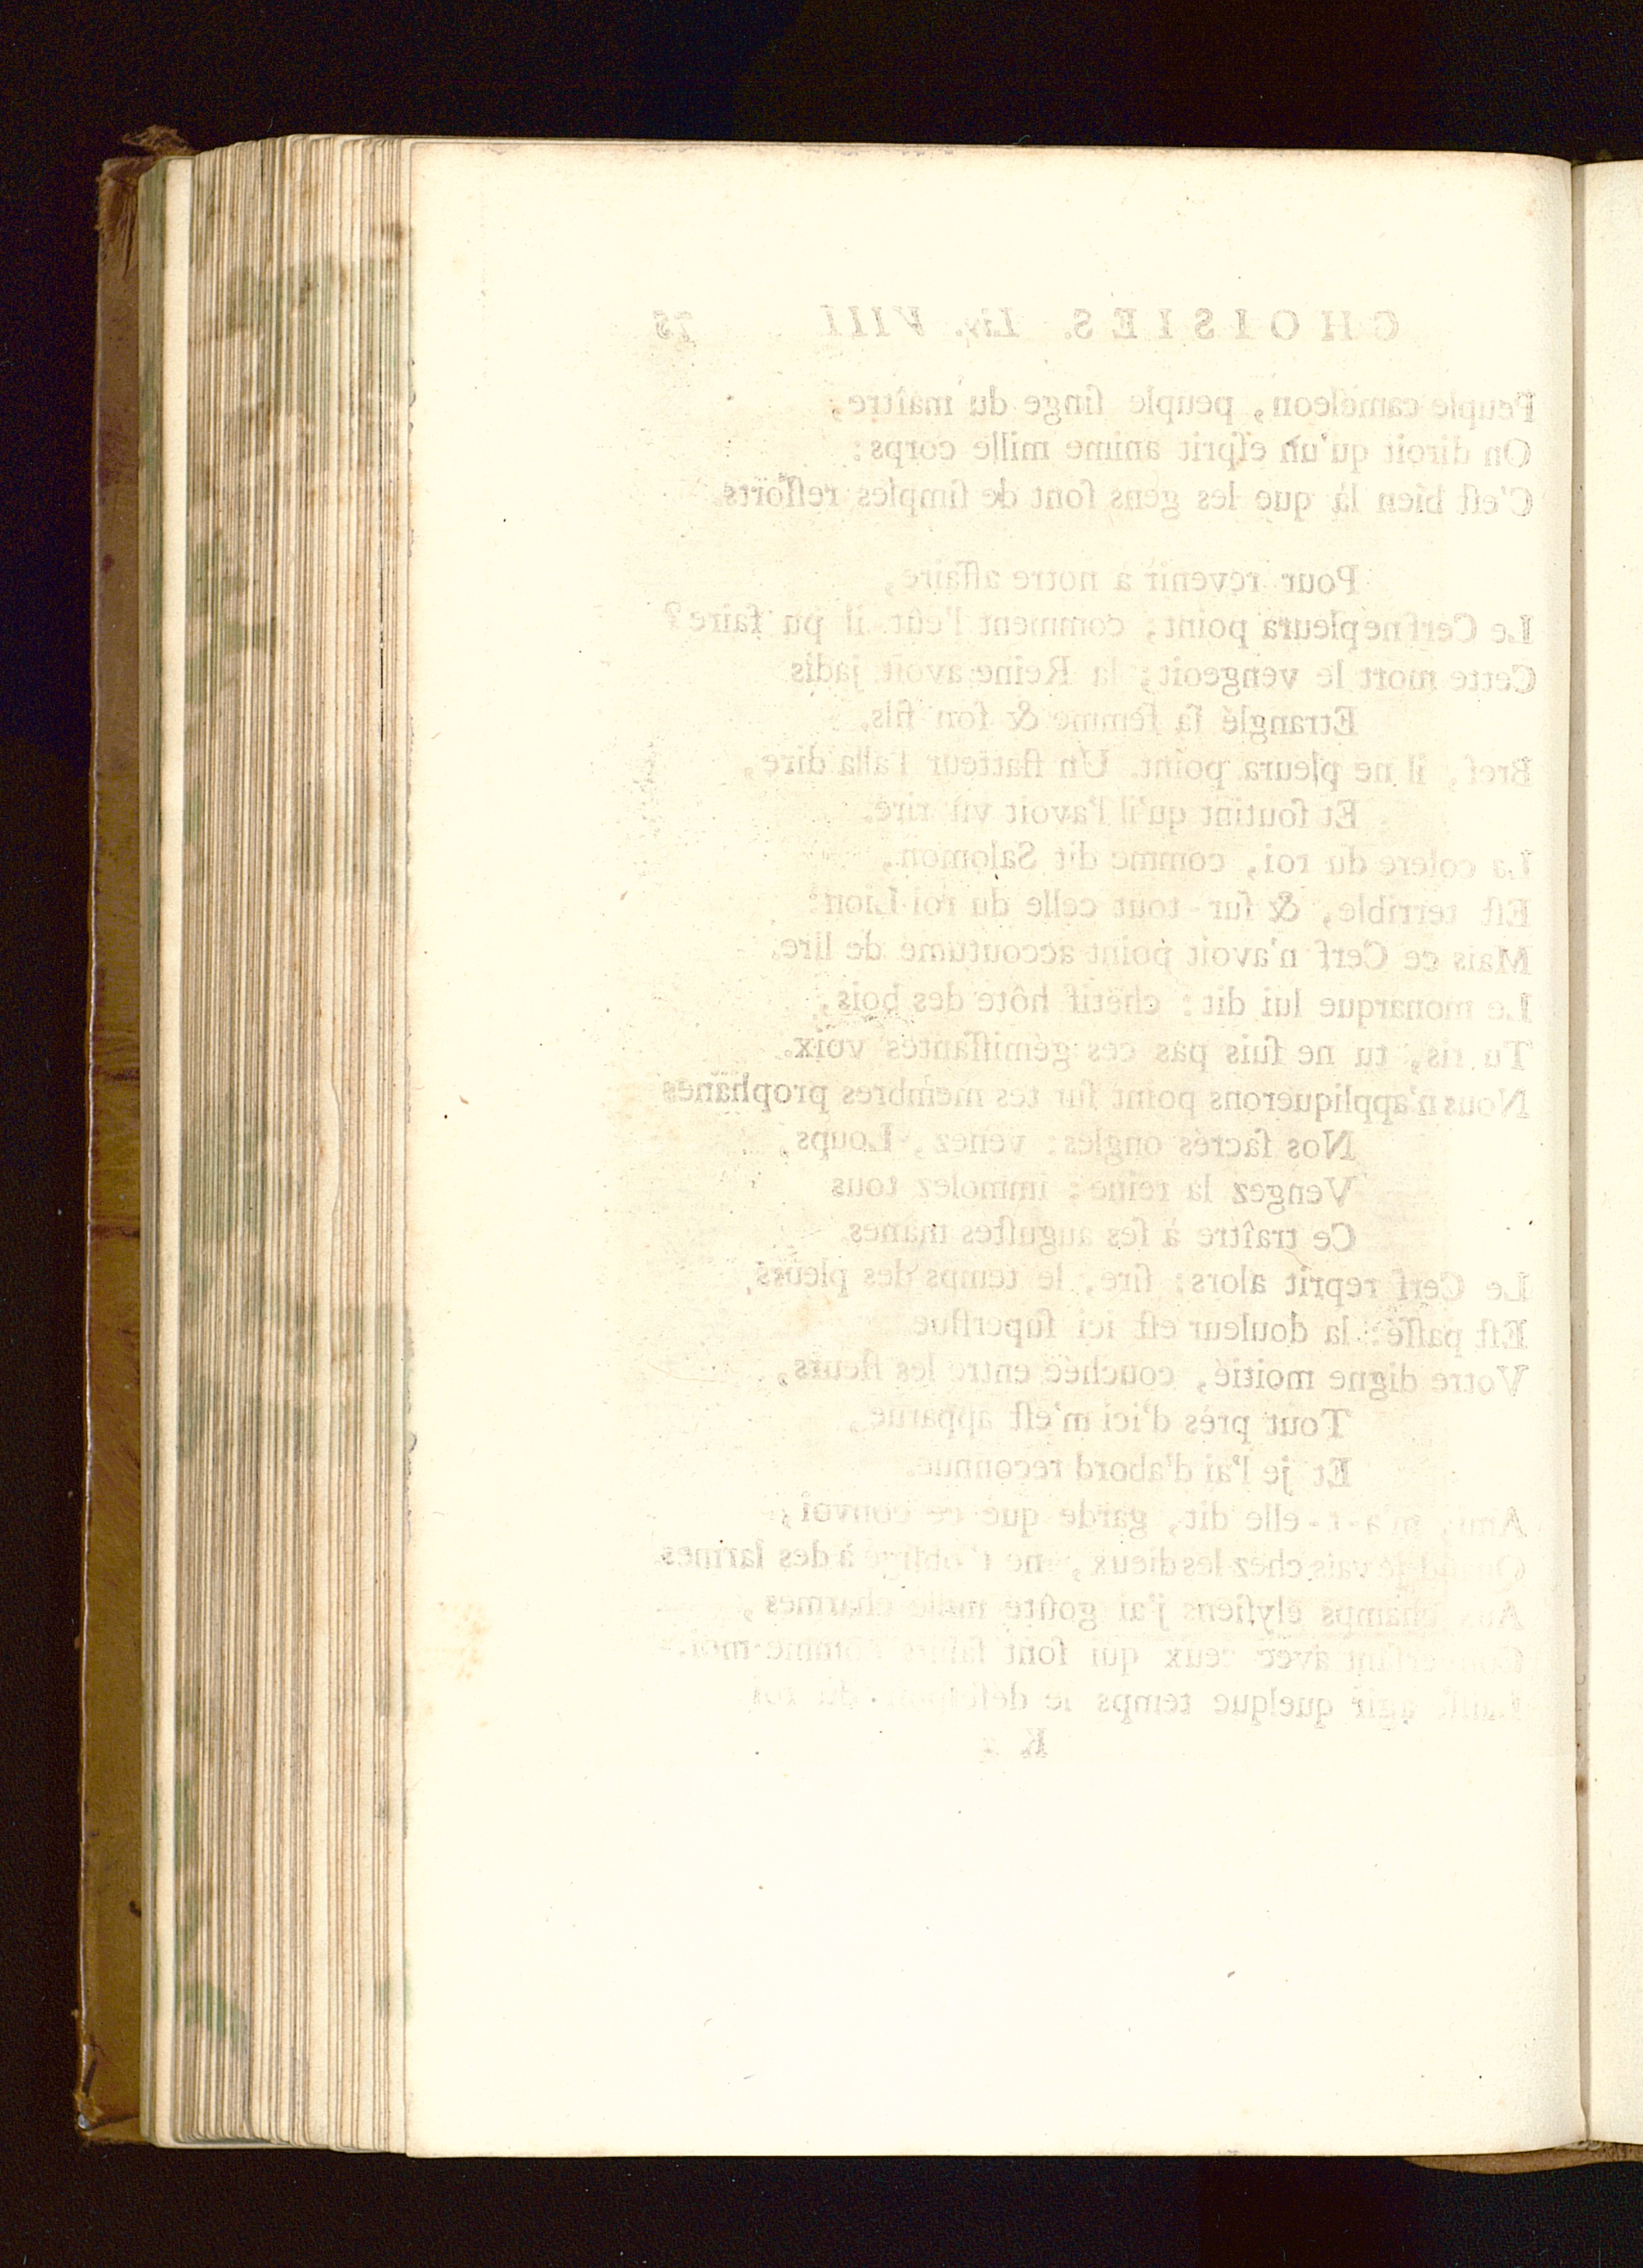 CHOISIES. Liv. VIII 75
Peuple caméleon, peuple ſinge du maître;
On diroit qu'un eſprit anime mille corps:
C'eſt bien là que les gens ſont de ſimples reſſorts.
Pour revenir à notre affaire,
Le Cerf ne pleura point; comment l'eût-il pu faire?
Cette mort le vengeoit; la Reine avoit jadis
Etranglé ſa femme & ſon fils.
Bref, il ne pleura point. Un flatteur l'alla dire,
Et ſoutint qu'il l'avoit vû rire.
La colere du roi, comme dit Salomon,
Eſt terrible, & ſur-tout celle du roi Lion:
Mais ce Cerf n'avoit point accoutumé de lire.
Le monarque lui dit: chétif hôte des bois,
Tu ris, tu ne ſuis pas ces gémiſſantes voix.
Nous n'appliquerons point ſur tes membres prophanes
Nos ſacrés ongles: venez, Loups,
Vengez la reine; immolez tous
Ce traître à ſes auguſtes manes.
Le Cerf reprit alors: ſire, le temps des pleurs
Eſt paſſé: la douleur eſt ici ſuperflue
Votre digne moitié, couchée entre les fleurs,
Tout près d'ici m'eſt apparue,
Et je l'ai d'abord reconnue.
Ami, m'a-t-elle dit, garde que ce convoi,
Quand je vais chez les dieux, ne t'oblige à des larmes
Aux champs élyſiens j'ai goûté mille charmes,
Converſant avec ceux qui ſont ſaints comme moi.
Laiſſe agir quelque temps le déſeſpoir du roi
K